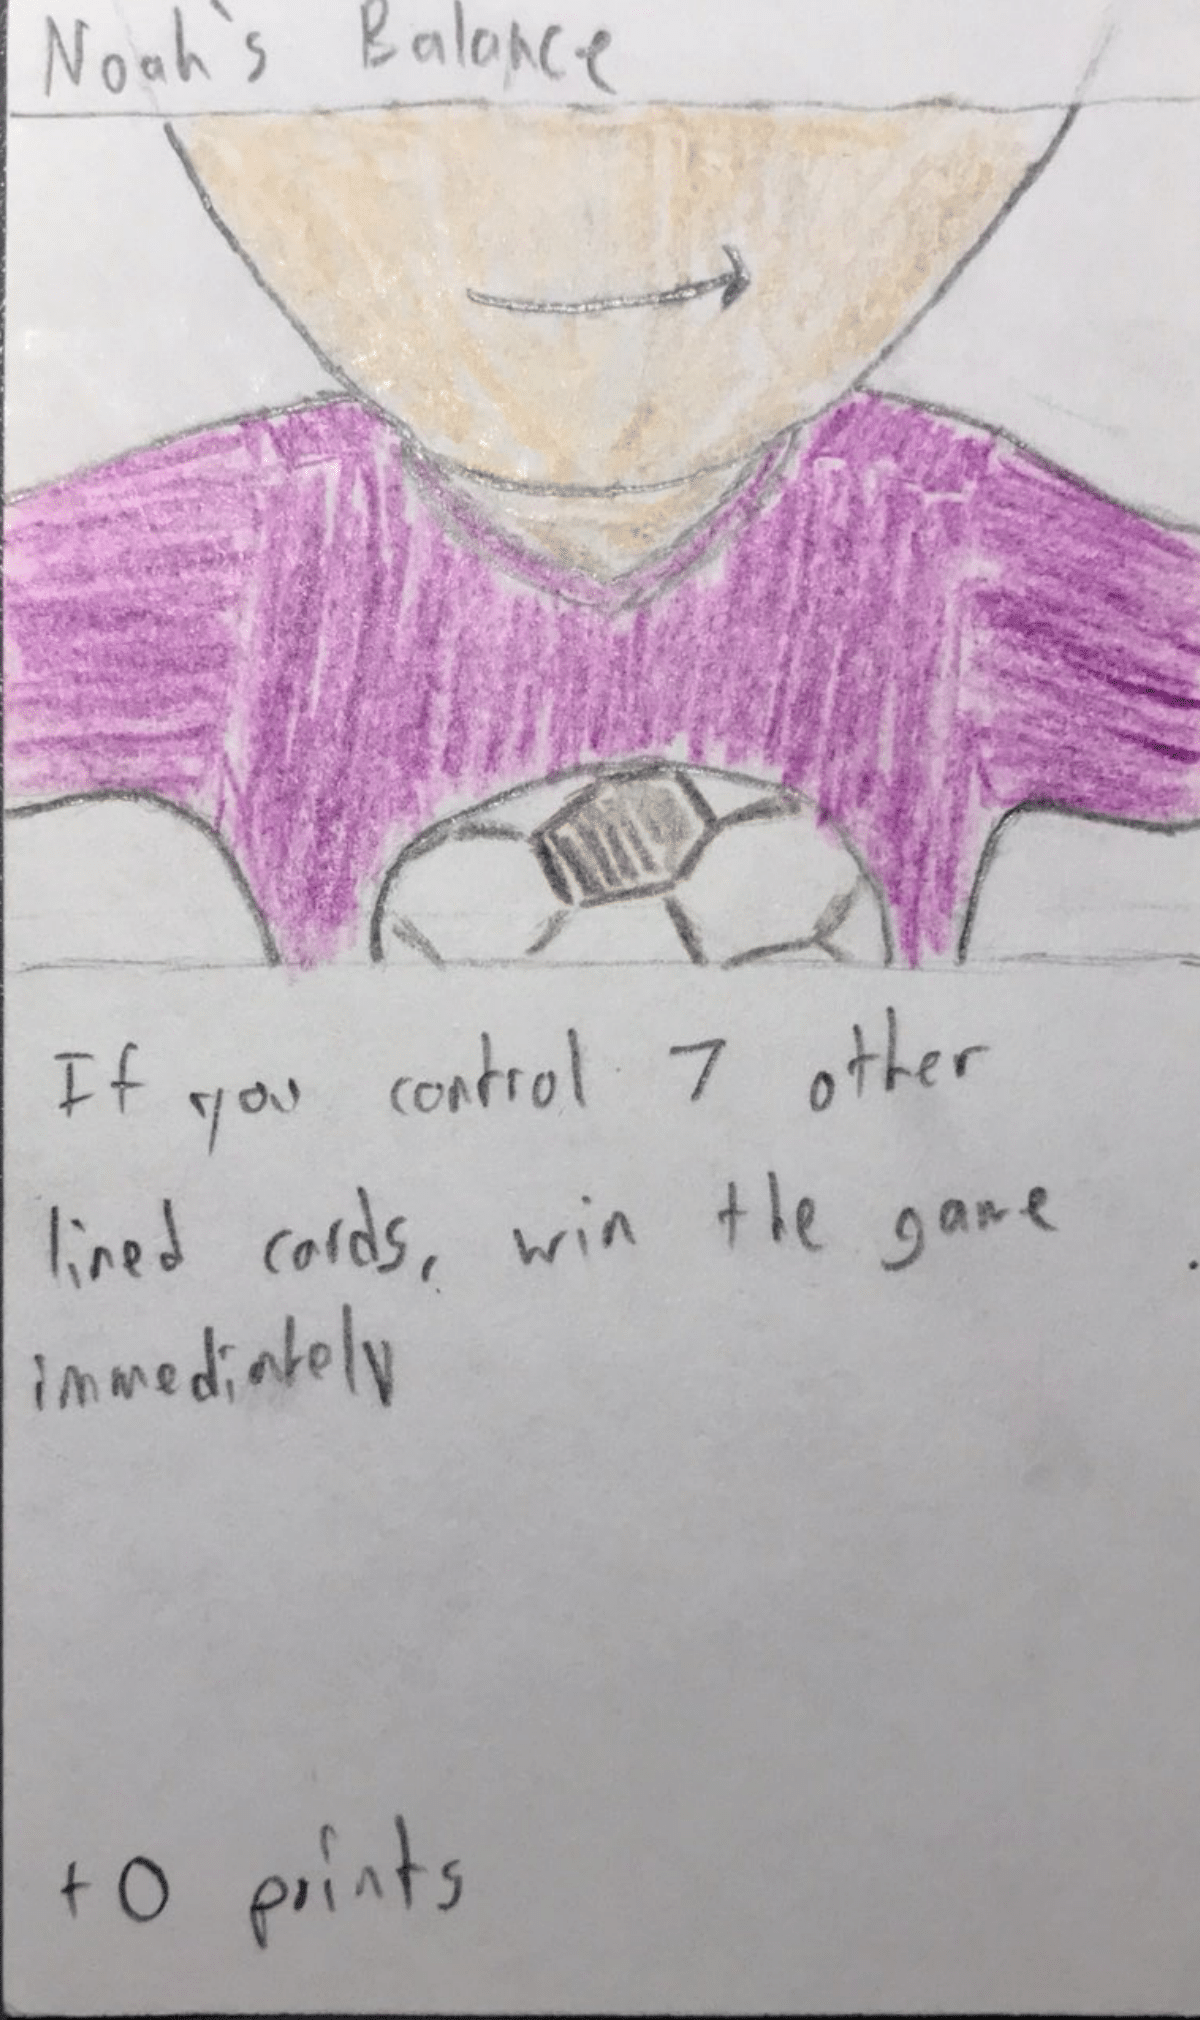 Noah's Balance
If you control 7 other
lined cards, win the game
immediately
+0 points